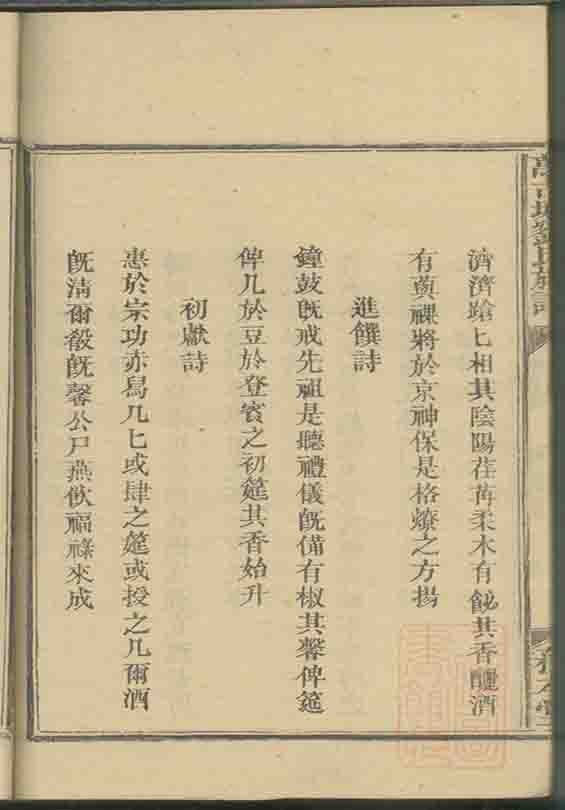 濟濟蹌〻相其陰陽荏苒柔木有飶其香釃酒
有藇祼將於京神保是格燎之方揚
進饌詩
鐘鼓既戒先祖是聽禮儀既備有椒其馨俾筵
俾几於豆於登賓之初筵其香始升
初獻詩
惠於宗功赤舄几〻或肆之筵或授之几爾酒
既清爾殽既馨公尸燕飲福祿來成